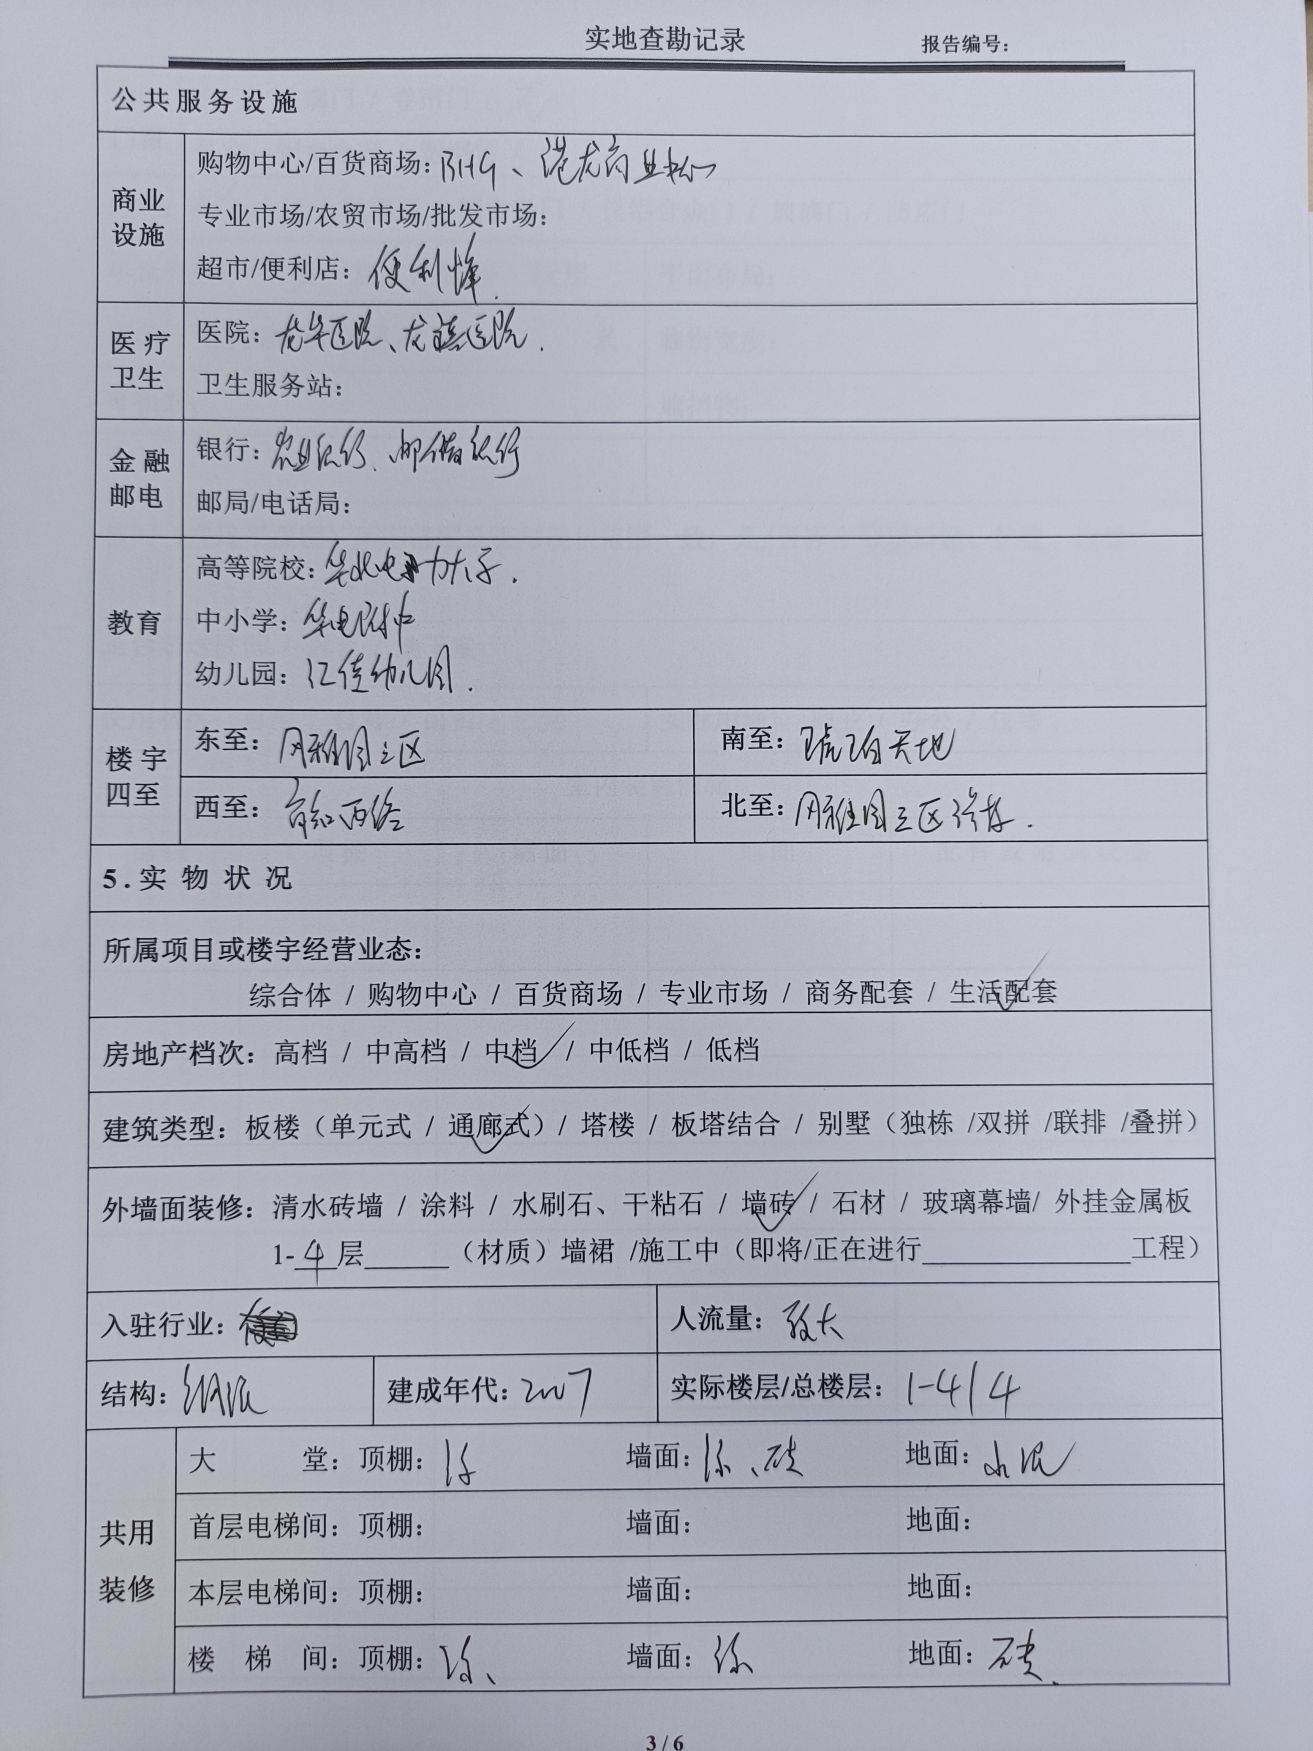 实地查勘记录 报告编号：
公共服务设施
商业设施
购物中心/百货商场：BHG、港龙商业中心
专业市场/农贸市场/批发市场：
超市/便利店：便利蜂.
医疗卫生
医院：龙华医院、龙禧医院.
卫生服务站：
金融邮电
银行：农业银行、邮储银行
邮局/电话局：
教育
高等院校：华北电力大学.
中小学：华电附中
幼儿园：汇佳幼儿园.
楼宇四至
东至：风雅园三区 南至：琥珀天地
西至：育知西路 北至：风雅园三区
5.实物状况
所属项目或楼宇经营业态：
综合体 / 购物中心 / 百货商场 / 专业市场 / 商务配套 / 生活配套
房地产档次：高档 / 中高档 / 中档 / 中低档 / 低档
建筑类型：板楼（单元式 / 通廊式）/ 塔楼 / 板塔结合 / 别墅（独栋 /双拼 /联排 /叠拼）
外墙面装修：清水砖墙 / 涂料 / 水刷石、干粘石 / 墙砖 / 石材 / 玻璃幕墙/ 外挂金属板
1-4层______（材质）墙裙 /施工中（即将/正在进行______________工程）
入驻行业： 人流量：较大
结构：钢混 建成年代：2007 实际楼层/总楼层：1-4/4
共用装修
大堂：顶棚：涂 墙面：涂、砖 地面：水泥
首层电梯间：顶棚： 墙面： 地面：
本层电梯间：顶棚： 墙面： 地面：
楼梯间：顶棚：涂、 墙面：涂 地面：砖.
3 / 6